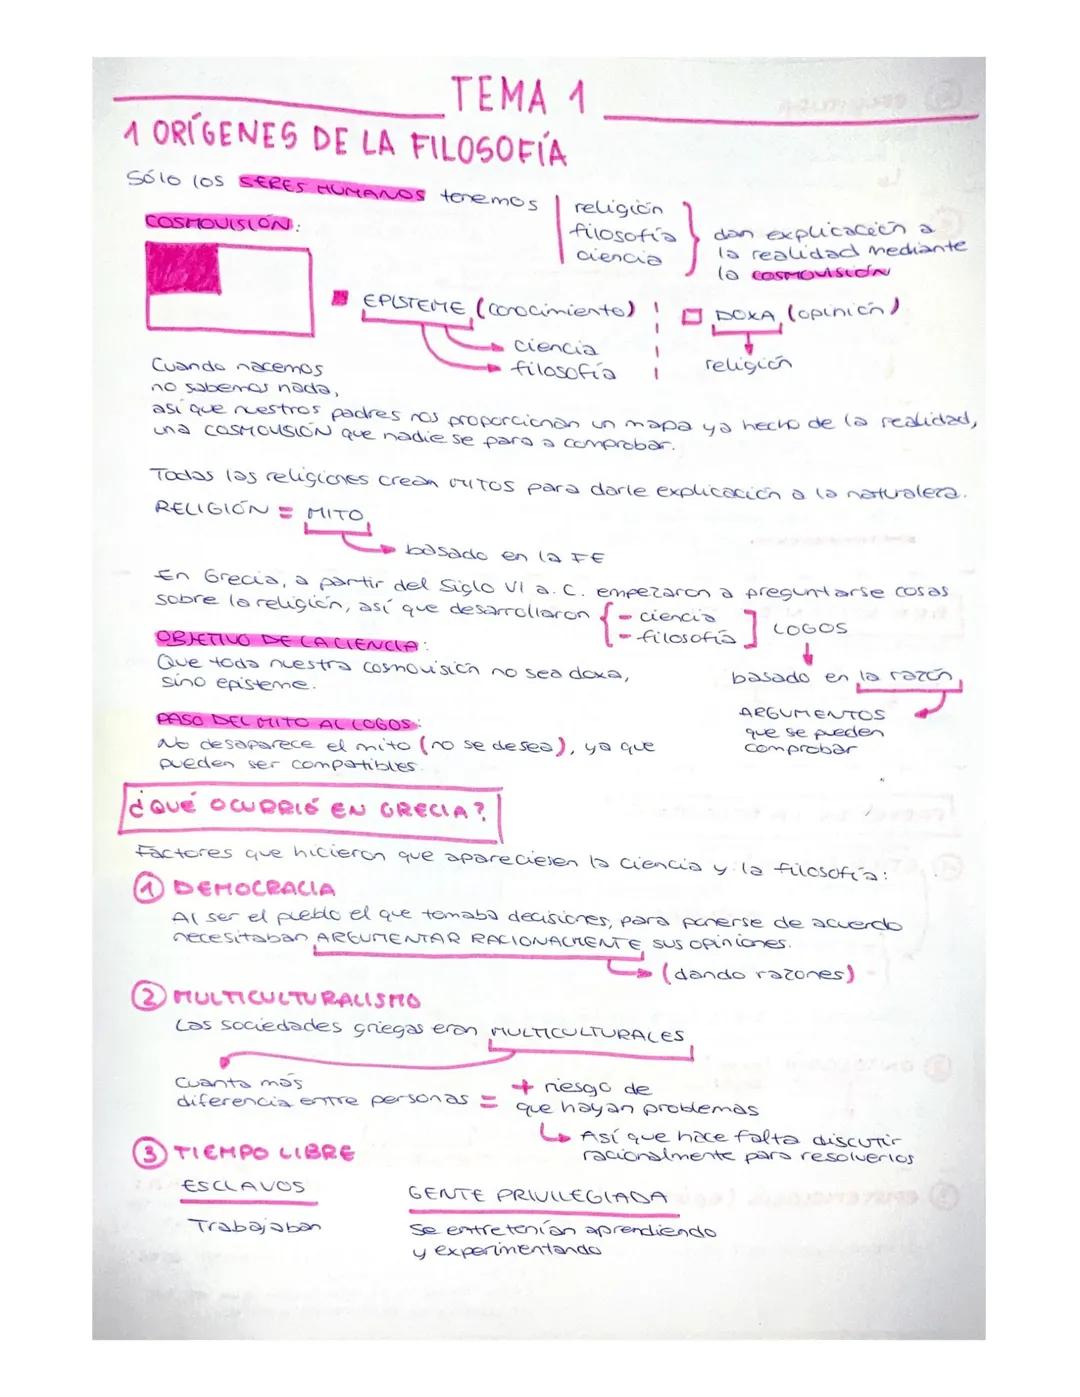 TEMA 1
1 ORÍGENES DE LA FILOSOFÍA
Sólo los SERES HUMANOS tenemos
religión
filosofía
ciencia
dan explicación a
la realidad mediante
la COSMOVISIÓN
COSMOVISIÓN:
EPISTEME (conocimiento)
ciencia
filosofía
DOXA (opinión)
religión
Cuando nacemos
no sabemos nada,
así que nuestros padres nos proporcionan un mapa ya hecho de la realidad,
una COSMOVISIÓN que nadie se para a comprobar.
Todas las religiones crean MITOS para darle explicación a la naturaleza.
RELIGIÓN = MITO
basado en la FE
En Grecia, a partir del Siglo VI a.C. empezaron a preguntarse cosas
sobre la religión, así que desarrollaron
- ciencia
- filosofía
LOGOS
basado en la razón
ARGUMENTOS
que se pueden
comprobar
OBJETIVO DE LA CIENCIA:
Que toda nuestra cosmovisión no sea doxa,
sino episteme.
PASO DEL MITO AL LOGOS:
No desaparece el mito (no se desea), ya que
pueden ser compatibles.
¿QUÉ OCURRIÓ EN GRECIA?
Factores que hicieron que apareciesen la ciencia y la filosofía:
1 DEMOCRACIA
Al ser el pueblo el que tomaba decisiones, para ponerse de acuerdo
necesitaban ARGUMENTAR RACIONALMENTE sus opiniones.
(dando razones)
2 MULTICULTURALISMO
Las sociedades griegas eran MULTICULTURALES
Cuanta más
diferencia entre personas =
+ riesgo de
que hayan problemas
Así que hace falta discutir
racionalmente para resolverlos
3 TIEMPO LIBRE
ESCLAVOS
Trabajaban
GENTE PRIVILEGIADA
Se entretenían aprendiendo
y experimentando